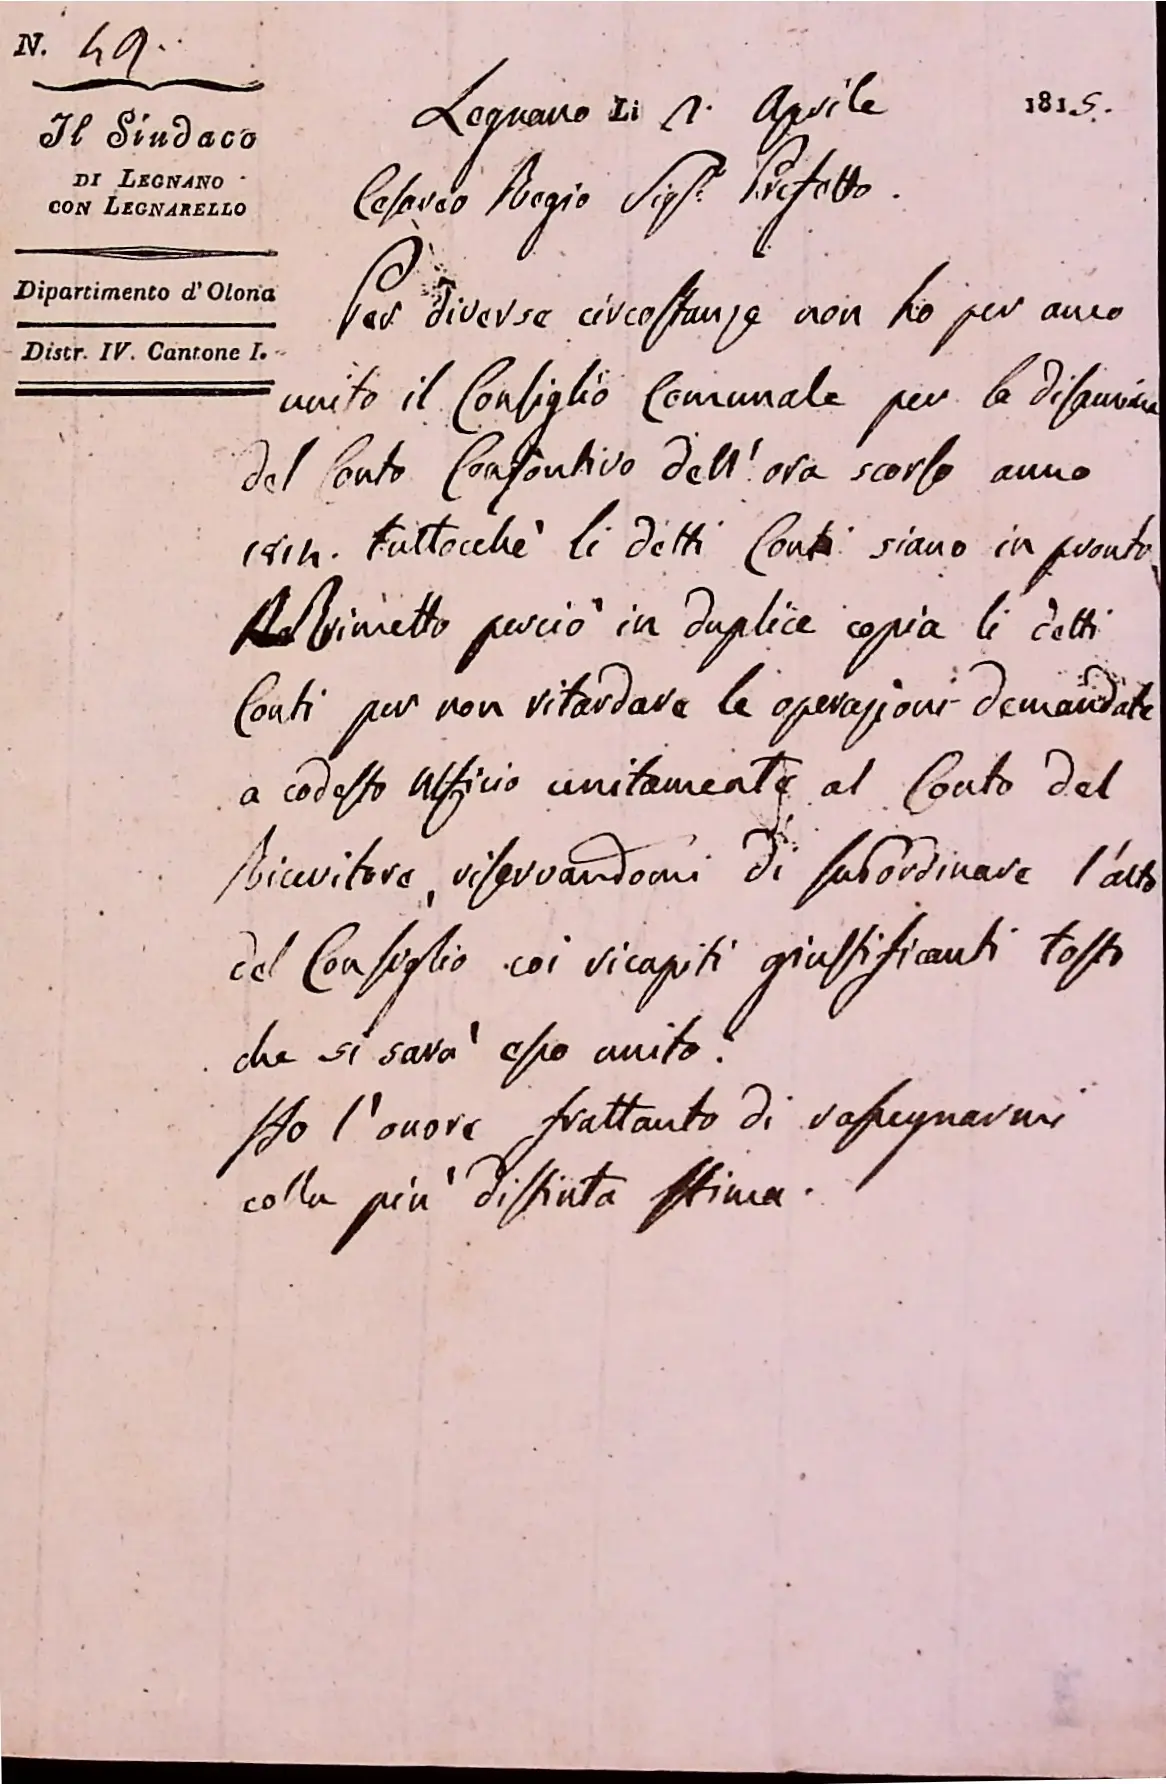 N. 49.
Il Sindaco
DI LEGNANO
CON LEGNARELLO
Dipartimento d'Olona
Distr. IV. Cantone I.
Legnano Li Aprile 1815.
Cesareo Regio Sigr. Prefetto.
Per diverse circostanze non ho per anco
unito il Consiglio Comunale per la disamina
del Conto Consontivo dell'ora scorso anno
1814. tuttocchè li detti Conti siano in pronto,
Rimetto perciò in duplice copia li detti
Conti per non ritardare le operazioni demandate
a codesto Ufficio unitamente al Conto del
Ricevitore, riservandomi di subordinare l'atto
del Consiglio coi ricapiti giustificanti tosto
che si sarà esso unito.
Ho l'onore frattanto di rassegnarmi
colla più distinta stima.